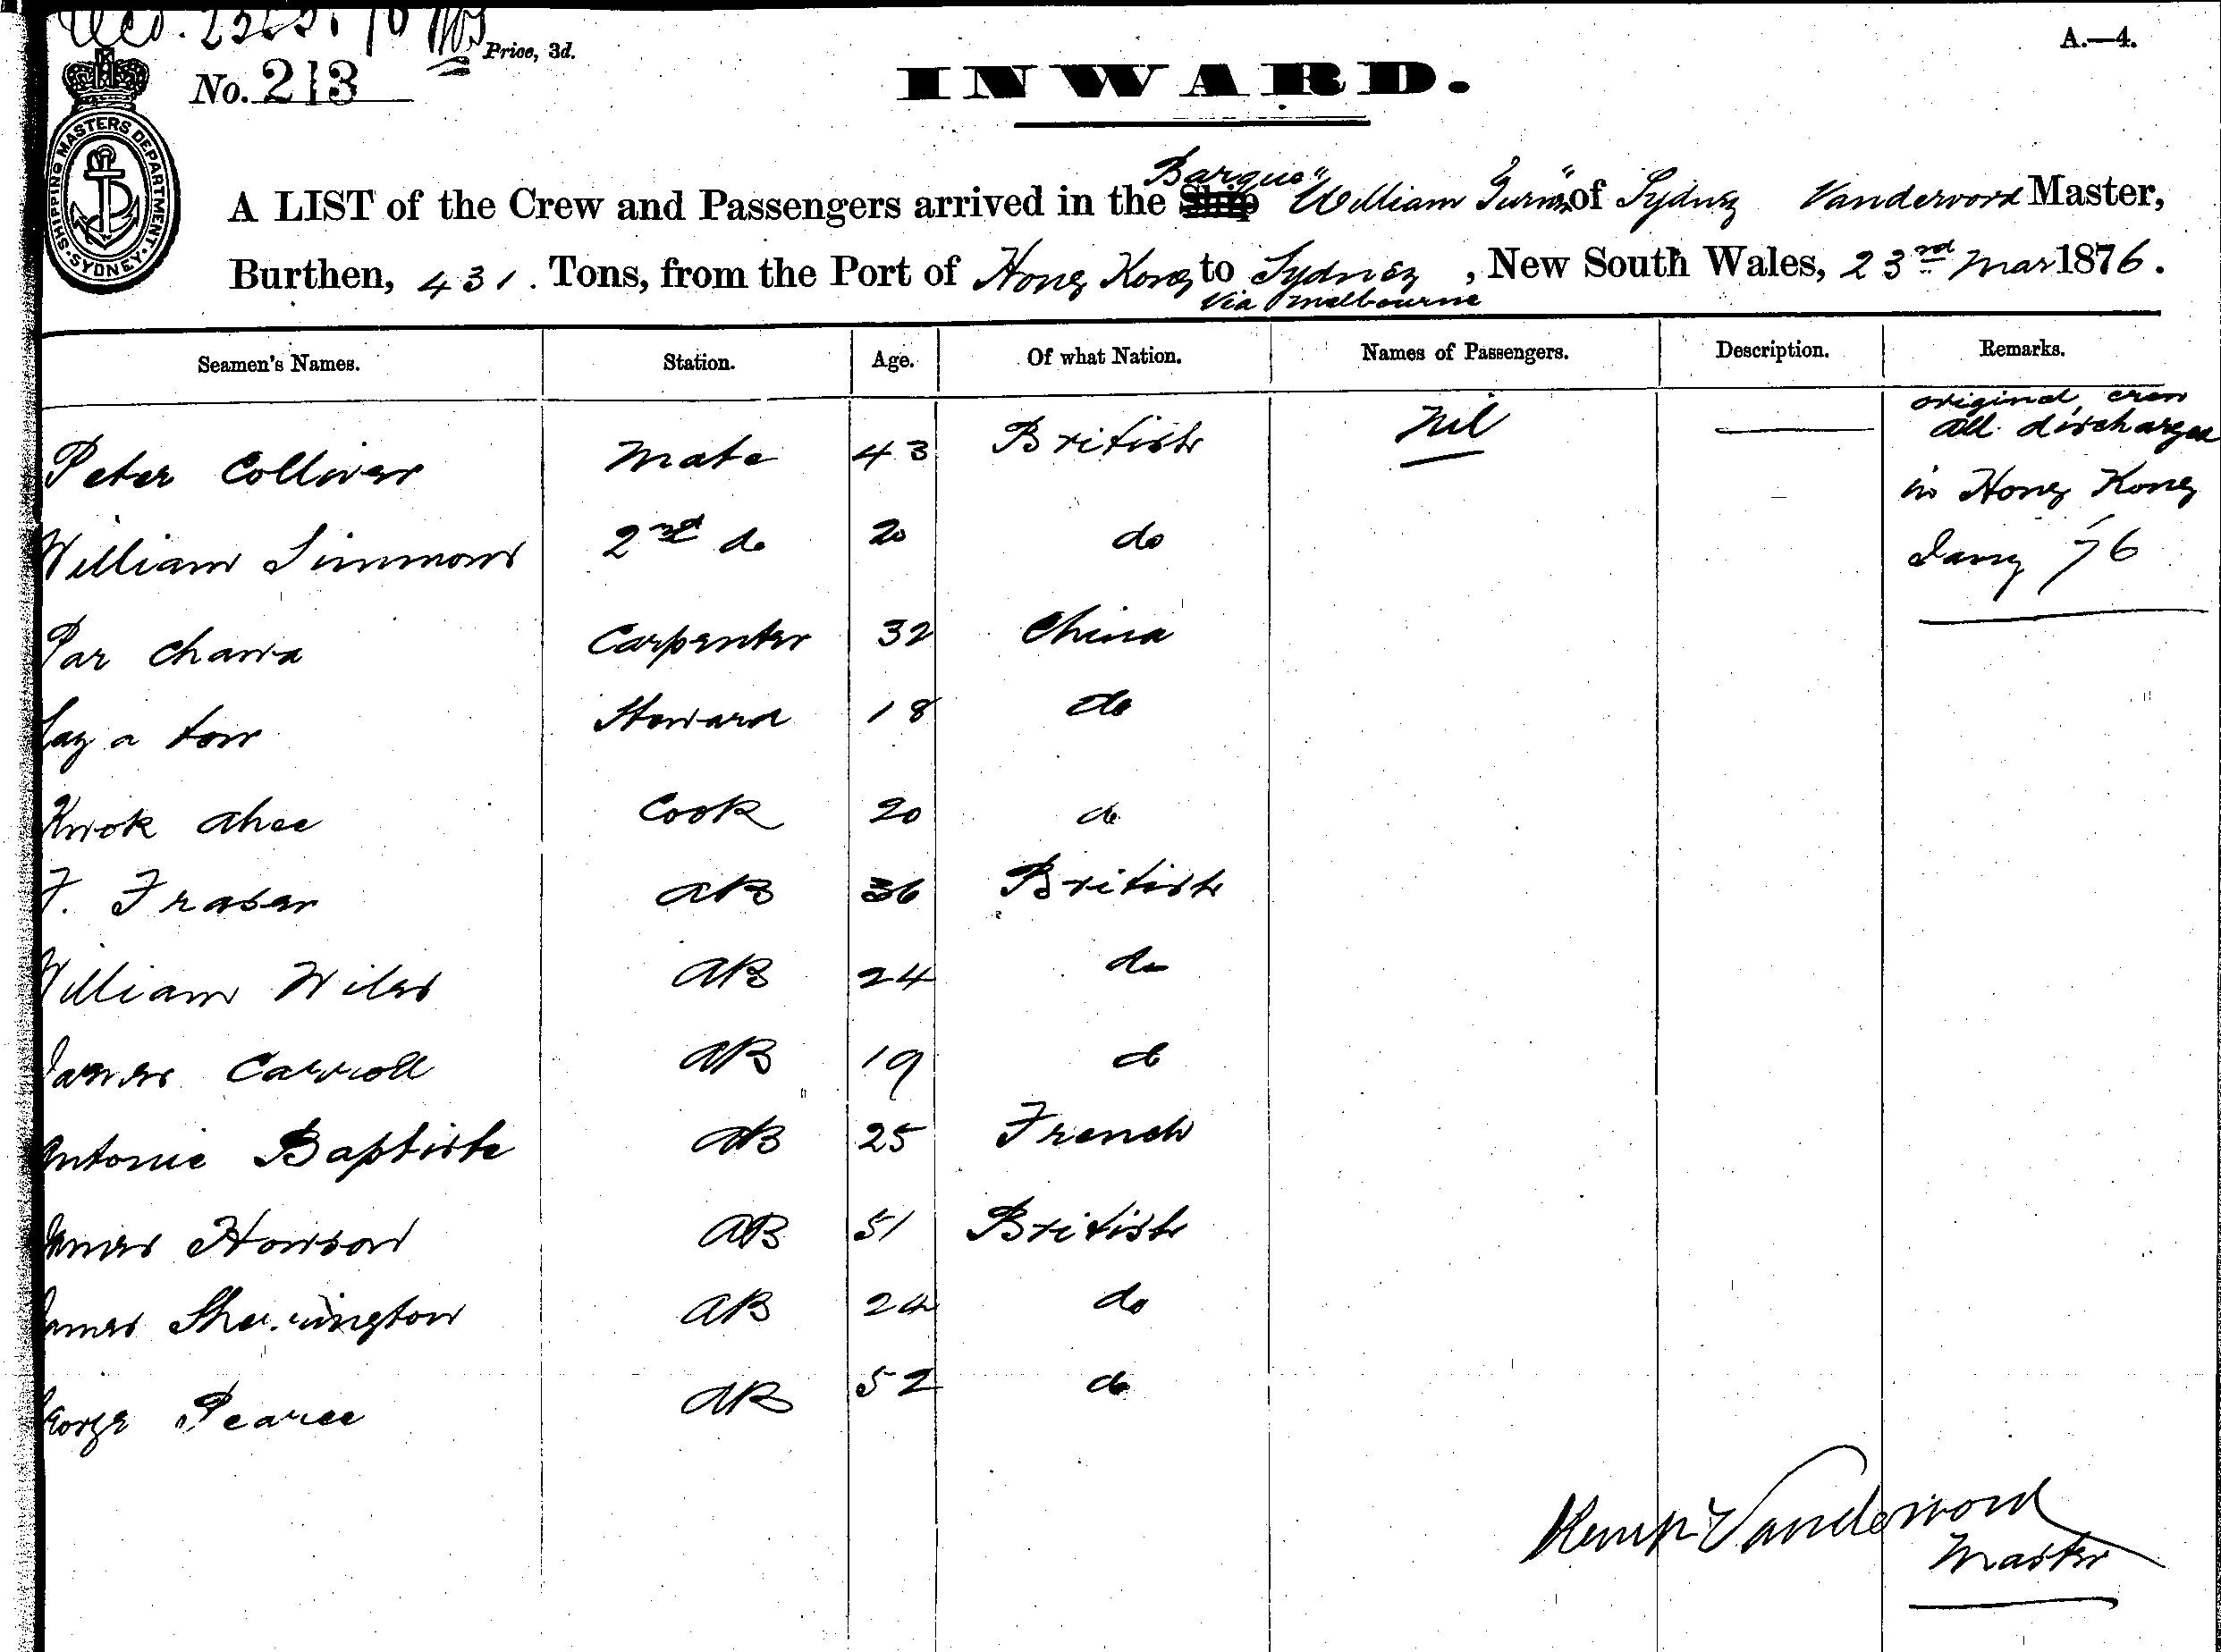 Price, 3d.
A.—4.
No. 213
SHIPPING MASTERS DEPARTMENT. SYDNEY.
INWARD.
Barque
A LIST of the Crew and Passengers arrived in the Ship "William Turner" of Sydney Vandervord Master,
Burthen, 431. Tons, from the Port of Hong Kong to Sydney, New South Wales, 23rd Mar 1876.
Via Melbourne
Seamen's Names. Station. Age. Of what Nation. Names of Passengers. Description. Remarks.
original crew
all discharged
Peter Colliver Mate 43 British Nil
in Hong Kong
William Simmons 2nd do 20 do
Jany 76
Par Chawa Carpenter 32 China
Lay a tow Steward 18 do
Kwok Ahee Cook 20 do
F. Fraser AB 36 British
William Wiles AB 24 do
James Carroll AB 19 do
Antonie Baptiste AB 25 French
James Howson AB 51 British
James Sherrington AB 24 do
George Pearce AB 52 do
Vandervord
Master